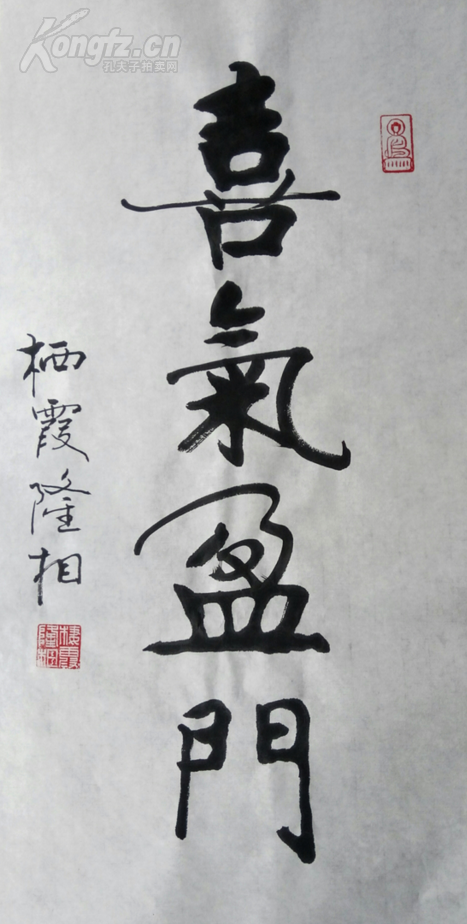 Kongfz.cn
孔夫子拍卖网
喜氣盈門
栖霞隆相
棲霞隆相